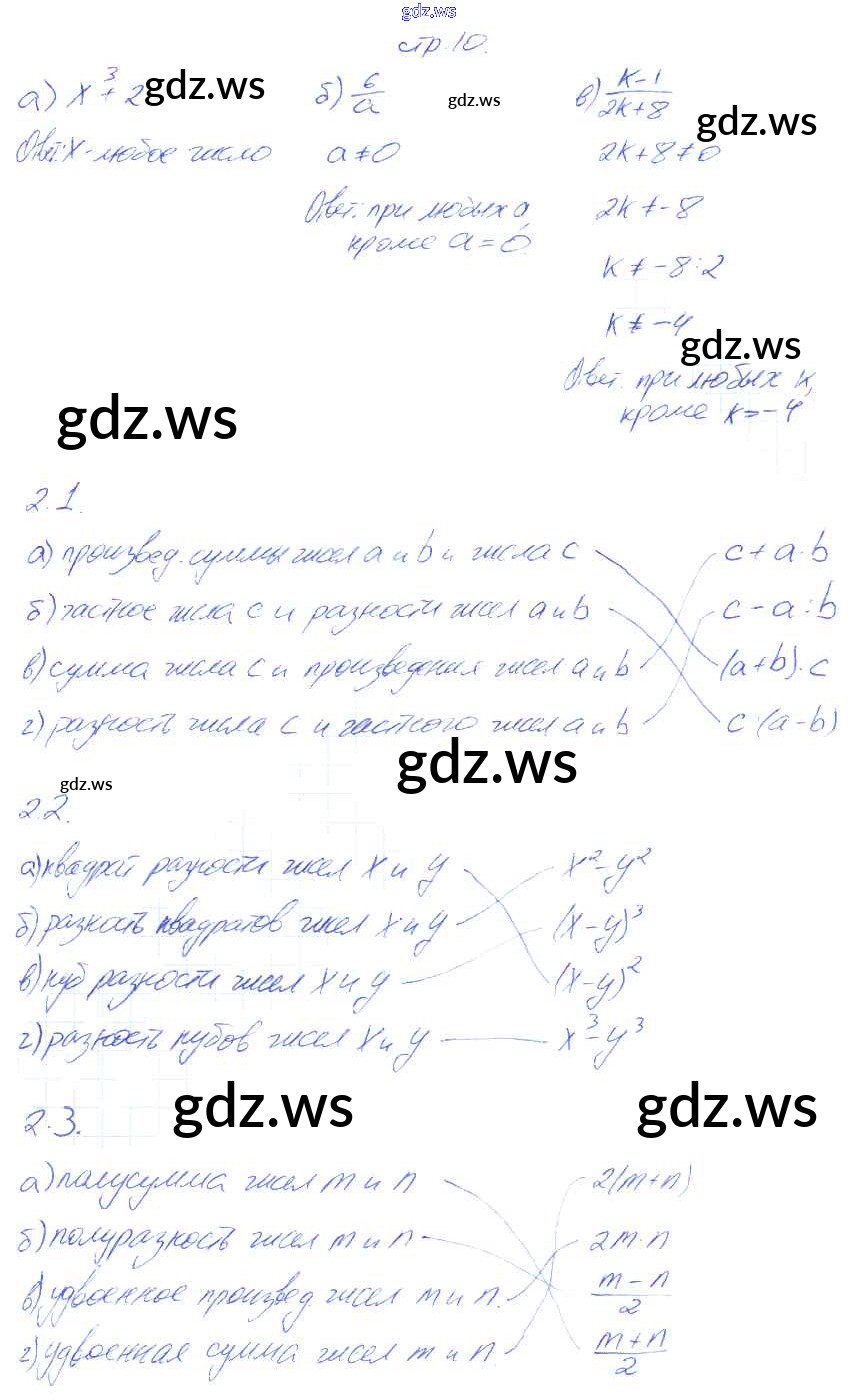 gdz.ws
стр. 10.
а) x³ + 2 gdz.ws б) 6/a gdz.ws в) k-1/2k+8 gdz.ws
Ответ: x - любое число a ≠ 0 2k + 8 ≠ 0
Ответ: при любых a, 2k ≠ -8
кроме a = 0.
k ≠ -8 : 2
k ≠ -4
gdz.ws
Ответ. при любых k,
gdz.ws кроме k = -4
2.1.
а) произвед. суммы чисел a и b и числа c c + a · b
б) частное числа c и разности чисел a и b c - a : b
в) сумма числа c и произведения чисел a и b (a+b) · c
г) разность числа c и частного чисел a и b c : (a - b)
gdz.ws
gdz.ws
2.2.
а) квадрат разности чисел x и y x² - y²
б) разность квадратов чисел x и y (x - y)³
в) куб разности чисел x и y (x - y)²
г) разность кубов чисел x и y x³ - y³
gdz.ws gdz.ws
2.3.
а) полусумма чисел m и n 2(m+n)
б) полуразность чисел m и n 2m·n
в) удвоенное произвед. чисел m и n. m - n/2
г) удвоенная сумма чисел m и n. m + n/2